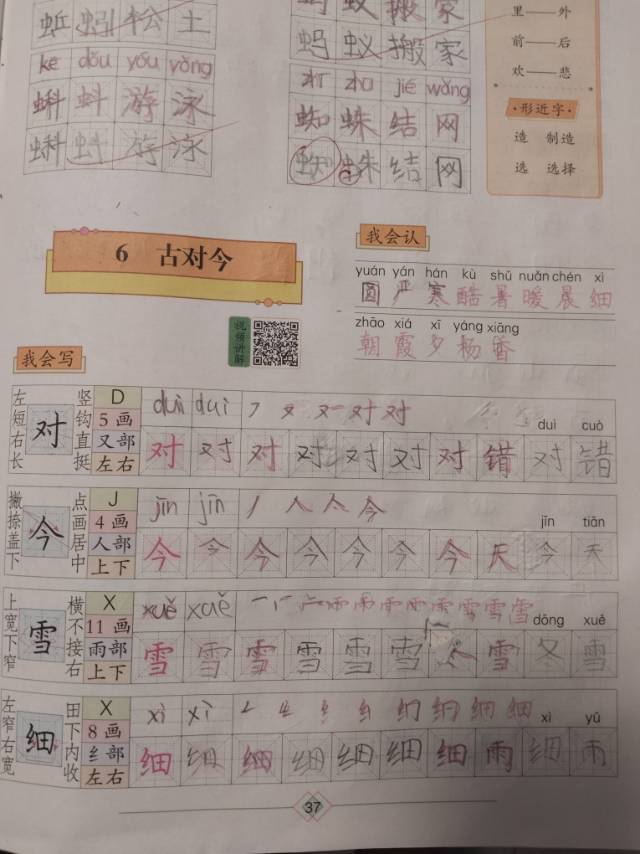 蚯 蚓 松 土
蚂 蚁 搬 家
蚂 蚁 搬 家
里——外
前——后
欢——悲
kē dǒu yóu yǒng
蝌 蚪 游 泳
蝌 蚪 游 泳
zhī zhū jié wǎng
蜘 蛛 结 网
蜘 蛛 结 网
形近字
造 制造
选 选择
6 古对今
视频讲解
我会认
yuán yán hán kù shǔ nuǎn chén xì
圆 严 寒 酷 暑 暖 晨 细
zhāo xiá xī yáng xiāng
朝 霞 夕 杨 香
我会写
左短右长 对 竖钩直挺
D
5 画
又部
左右
duì duì
duì cuò
对 对 对 对 对 对 对 错 对 错
撇捺盖下 今 点画居中
J
4 画
人部
上下
jīn jīn
jīn tiān
今 今 今 今 今 今 今 天 今 天
上宽下窄 雪 横不接右
X
11 画
雨部
上下
xuě xuě
dōng xuě
雪 雪 雪 雪 雪 雪 冬 雪 冬 雪
左窄右宽 细 田下内收
X
8 画
纟部
左右
xì xì
xì yǔ
细 细 细 细 细 细 细 雨 细 雨
37